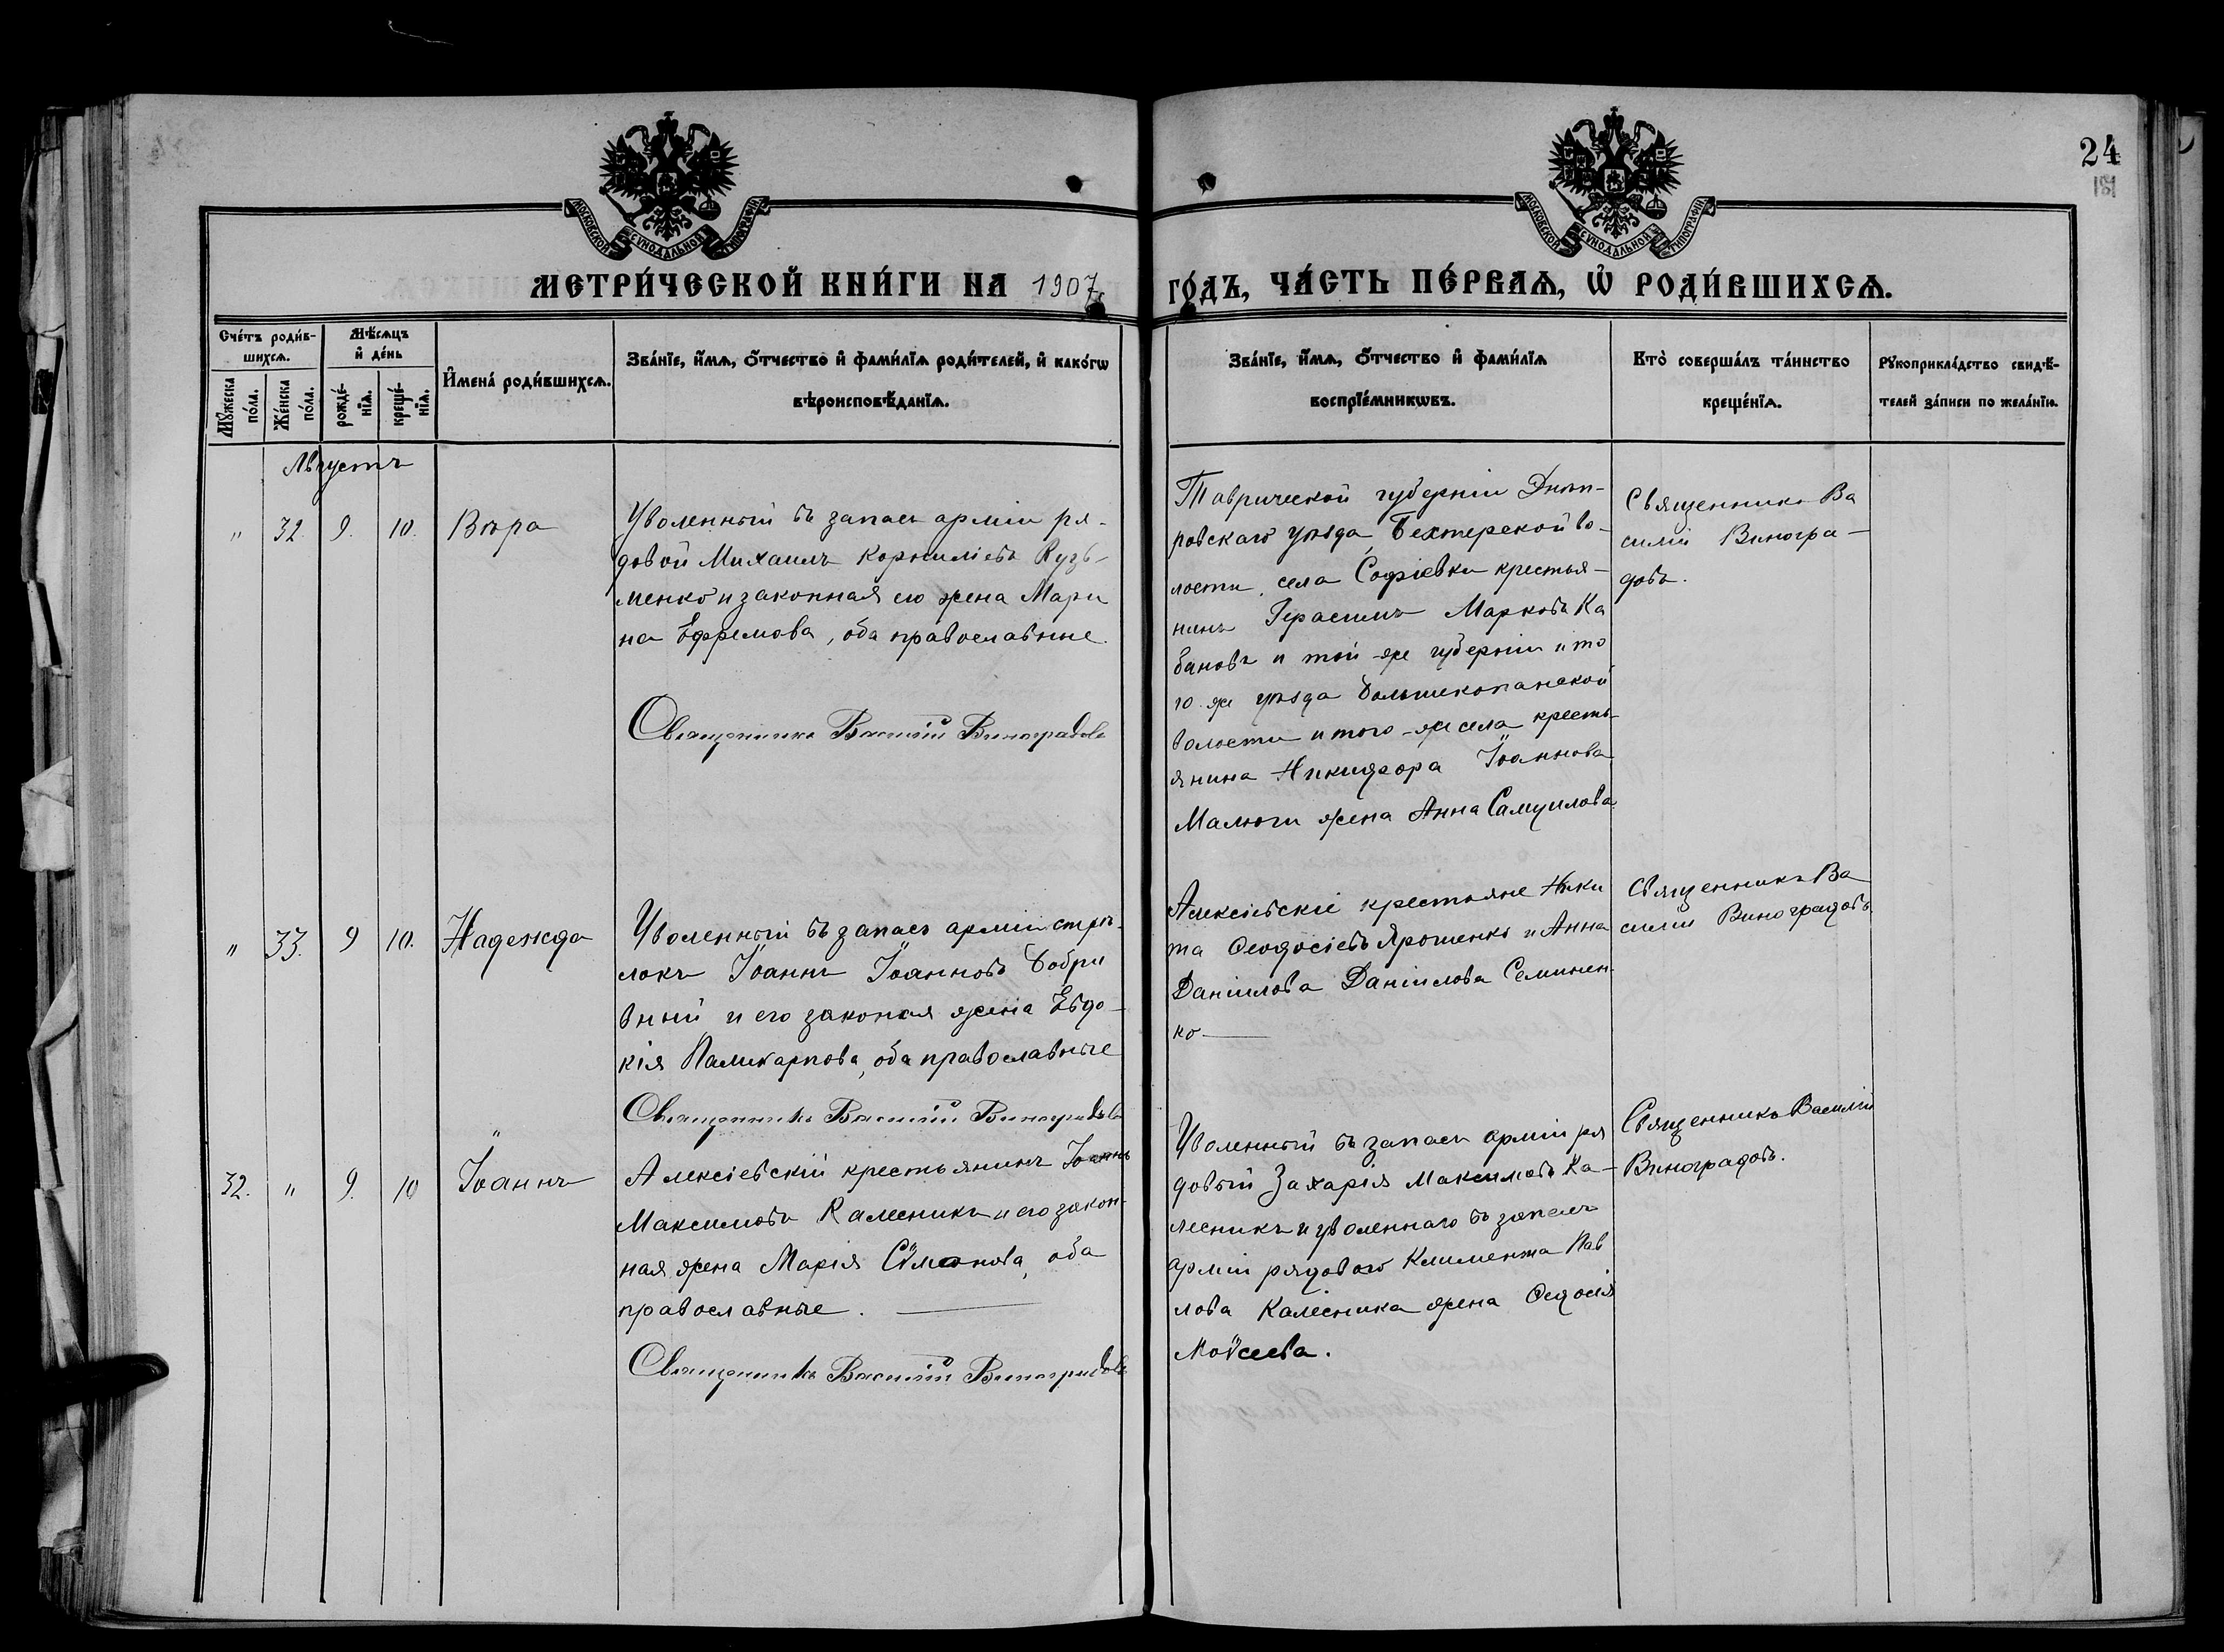 24
МОСКОВСКОЙ СѴНОДАЛЬНОЙ ТИПОГРАФІИ
МОСКОВСКОЙ СѴНОДАЛЬНОЙ ТИПОГРАФІИ
МЕТРИ́ЧЕСКОЙ КНИ́ГИ НА 1907 ГО́ДЪ, ЧА́СТЬ ПЕ́РВАѦ, Ѡ҆ РОДИ́ВШИХСѦ.
Сче́тъ роди́в-
шихсѧ.
Мꙋ́жеска
по́ла.
Же́нска
по́ла.
Мѣ́сѧцъ
и҆ де́нь
рожде́-
нїѧ.
креще́-
нїѧ.
И҆мена̀ роди́вшихсѧ.
Зва́нїе, и҆́мѧ, ѻ҆́тчество и҆ фами́лїѧ роди́телей, и҆ како́гѡ
вѣроисповѣ́данїѧ.
Зва́нїе, и҆́мѧ, ѻ҆́тчество и҆ фами́лїѧ
воспрїе́мникѡвъ.
Кто̀ соверша́лъ та́инство
креще́нїѧ.
Рꙋкоприкла́дство свидѣ́-
телей за́писи по жела́нїю.
Августъ
" 32. 9. 10. Вѣра
Уволенный въ запасъ арміи ря-
довой Михаилъ Корниліевъ Кузь-
менко и законная его жена Мари
на Ефремова, оба православные.
Священникъ Василій Виноградовъ
Таврической губерніи Днѣп-
ровскаго уѣзда, Бехтерской во-
лости, села Софіевки крестья-
нинъ Герасимъ Марковъ Ка
бановъ и той-же губерніи и то
го-же уѣзда Большекопанской
волости и того-же села кресть-
янина Никифора Іоаннова
Малюги жена Анна Самуилова
Священникъ Ва
силій Виногра-
довъ.
" 33. 9 10. Надежда
Уволенный въ запасъ арміи стрѣ-
локъ Іоаннъ Іоанновъ Добри
вный и его законая жена Евдо-
кія Паликарпова, оба православные
Священникъ Василій Виноградовъ
Алексіевскіе крестьяне Ники
та Ѳеодосіевъ Ярошенко и Анна
Даніилова Даніилова Семинен-
ко
Священникъ Ва
силій Виноградовъ
32. " 9. 10 Іоаннъ
Алексіевскій крестьянинъ Іоаннъ
Максимовъ Калесникъ и его закон-
ная жена Марія Сѵмонова, оба
православные.
Священникъ Василій Виноградовъ
Уволенный въ запасъ арміи ря
довый Захарія Максимовъ Ка-
лесникъ и уволеннаго въ запасъ
арміи рядового Климента Пав
лова Калесника жена Ѳедосія
Моѵсеева.
Священникъ Василій
Виноградовъ.